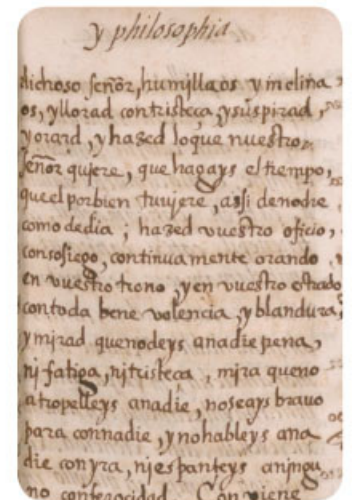 y philosophia
dichoso señor, humillaos y inclina
os, y llorad con tristeça, y suspirad,
y orad, y hazed loque nuestro
señor quiere, que hagays el tiempo,
que el porbien tuuiere, assi denoche
como dedia; hazed vuestro oficio,
consosiego, continuamente orando
en vuestro trono, y en vuestro estrado
contoda beneuolencia, y blandura,
y mirad quenodeys anadie pena,
ni fatiga, ni tristeça, mira queno
atropelleys anadie, noseays brauo
para connadie, y nohableys ana
die conyra, niespanteys aningu
no conferocidad. Conviene